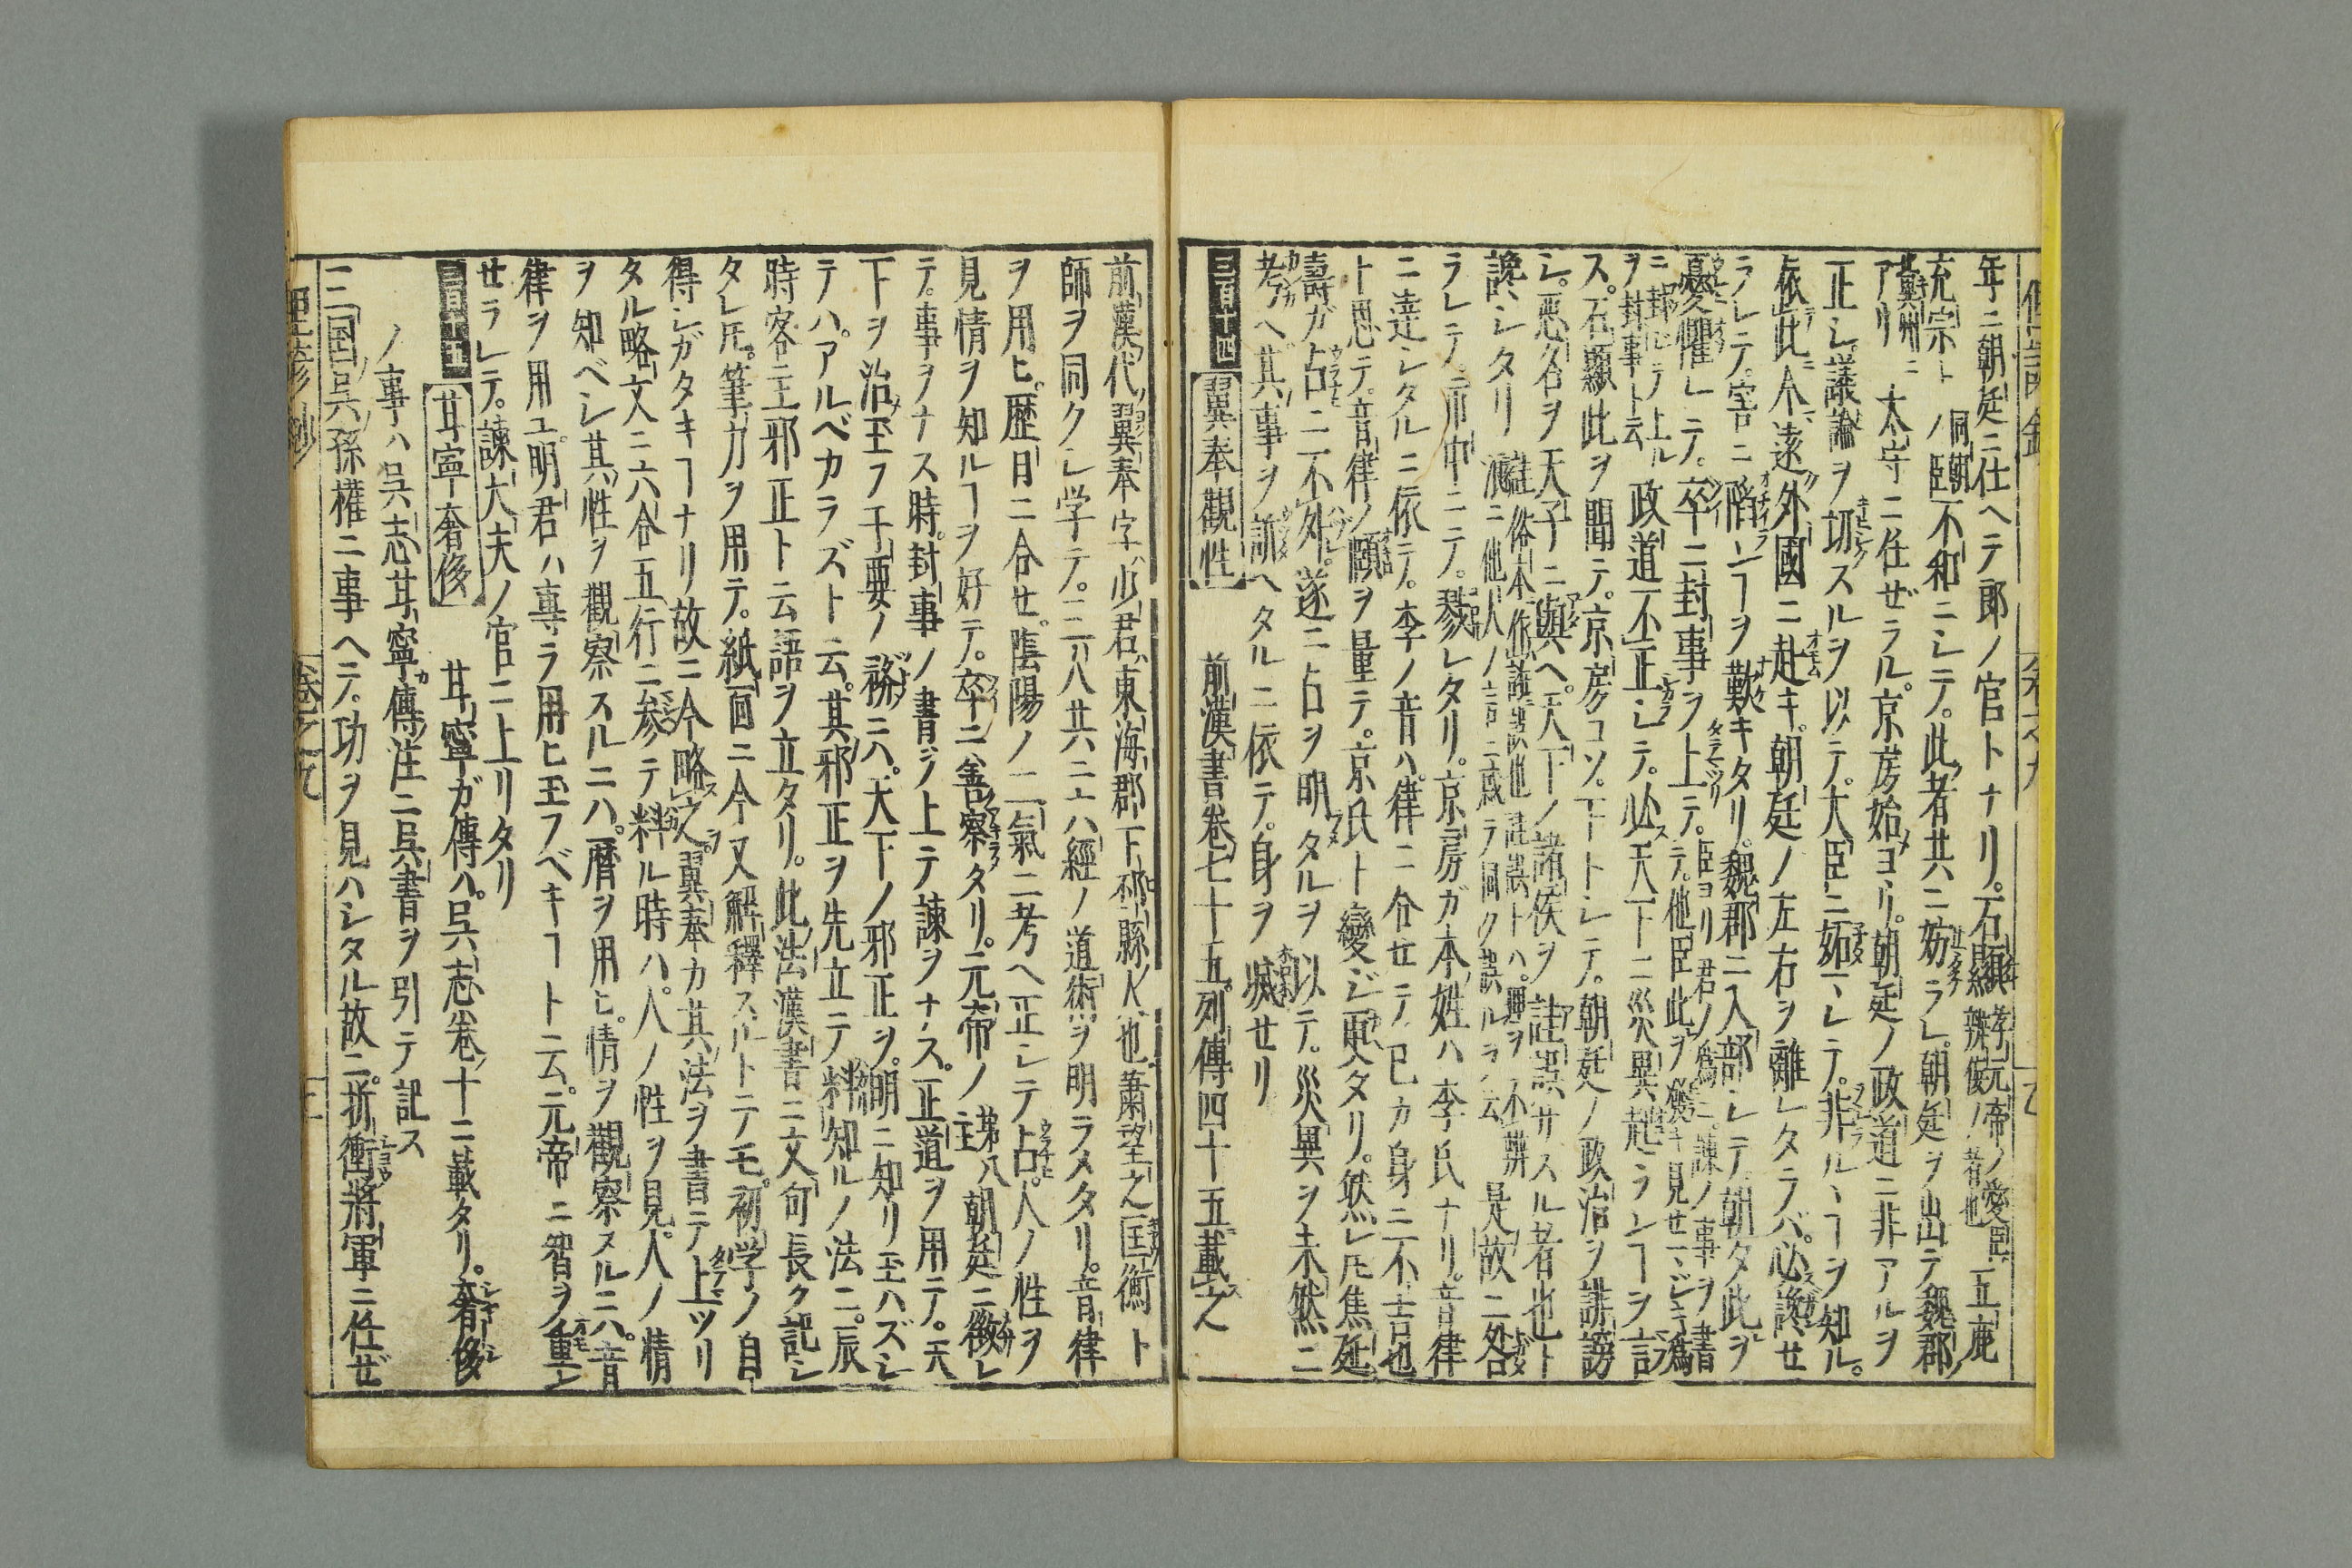 年ニ朝廷ニ仕ヘテ郎ノ官トナリ。石顯孝元帝ノ愛臣五鹿
充宗ト同朝ノ臣不和ニシテ。此者共ニ妨ラレ。朝廷ヲ出テ魏郡
冀州ニアリ太守ニ任ゼラル。京房始ヨリ。朝廷ノ政道ニ非アルヲ
正シ。議論ヲ切スルヲ以テ。大臣ニ妬マレテ。非ルヿヲ知ル。
依此不遠外國ニ赴キ。朝廷ノ左右ヲ離レタラバ。必讒セ
ラレニテ。害ニ陷ンヿヲ歎キタリ。魏郡ニ入部シテ。朝夕此ヲ
憂懼レニテ。卒ニ封事ヲ上テ。臣ヨリ君ノ爲ニ諫ノ事ヲ書
ニ封シテ上ルヲ封事ト云政道不正シテ。必天下ニ災異起ランヿヲ言
ス。石顯此ヲ聞テ。京房コソ。下トシテ。朝廷ノ政治ヲ誹謗
シ。悪名ヲ天子ニ與ヘ。天下ノ諸侯ヲ註誤サスル者也ト
讒シタリ是故ニ咎
ラレテ。市中ニテ。戮レタリ。京房ガ本姓ハ李氏ナリ。音律
ニ達シタルニ依テ。李ノ音ハ。律ニ合セテ已カ身ニ不吉也
ト思テ。音律ノ頤ヲ量テ。京氏ト變ジ更タリ。然レ𪜈焦延
壽ガ占ニ不外。遂ニ占ヲ明タルヲ以テ。災異ヲ未然ニ
考ヘ。其事ヲ訴ヘタルニ依テ。身ヲ滅セリ
三百十四 翼奉觀性 前漢書卷七十五。列傳四十五載之
前漢代翼奉字少君。東海郡下邳縣人也蕭望之匡衡ト
師ヲ同クシ学テ。三人共ニ六經ノ道術ヲ明ラメタリ。音律
ヲ用ヒ。歴日ニ合セ。陰陽ノ二氣ニ考ヘ正シテ占。人ノ性ヲ
見情ヲ知ルヿヲ好テ。卒ニ善察タリ。元帝ノ第八主朝廷ニ徴レ
テ。事ヲナス時。封事ノ書ジ上テ諫ヲナス。正道ヲ用テ。天
下ヲ治玉フ于要ノ務ニハ。天下ノ邪正ヲ。明ニ知リ玉ハズシ
テハ。アルベカラズト云。其邪正ヲ先立テ料知ルノ法ニ。辰
時客主邪正ト云語ヲ立タリ。此法漢書ニ文句長ク記シ
タレ𪜈。筆力ヲ用テ。紙面ニ今又解釋スルトニテモ。初学ノ自
得シガタキヿナリ故ニ今略之。翼奉カ其法ヲ書テ上ツリ
タル略文ニ六合五行ニ参テ料ル時ハ。人ノ性ヲ見。人ノ情
ヲ知ベシ其性ヲ觀察スルニハ。暦ヲ用ヒ。情ヲ觀察スルニハ。音
律ヲ用ユ。明君ハ專ラ用ヒ玉フベキヿト云。元帝ニ智ヲ重ン
セラレテ。諫大夫ノ官ニ上リタリ
三百十五 甘寧奢侈 甘寧ガ傳ハ。呉志卷十ニ載タリ。奢侈
ノ事ハ呉志甘寧傳注ニ呉書ヲ引テ記ス
三国呉孫權ニ事ヘテ。功ヲ見ハシタル故ニ。折衝將軍ニ任ゼ
卷之九